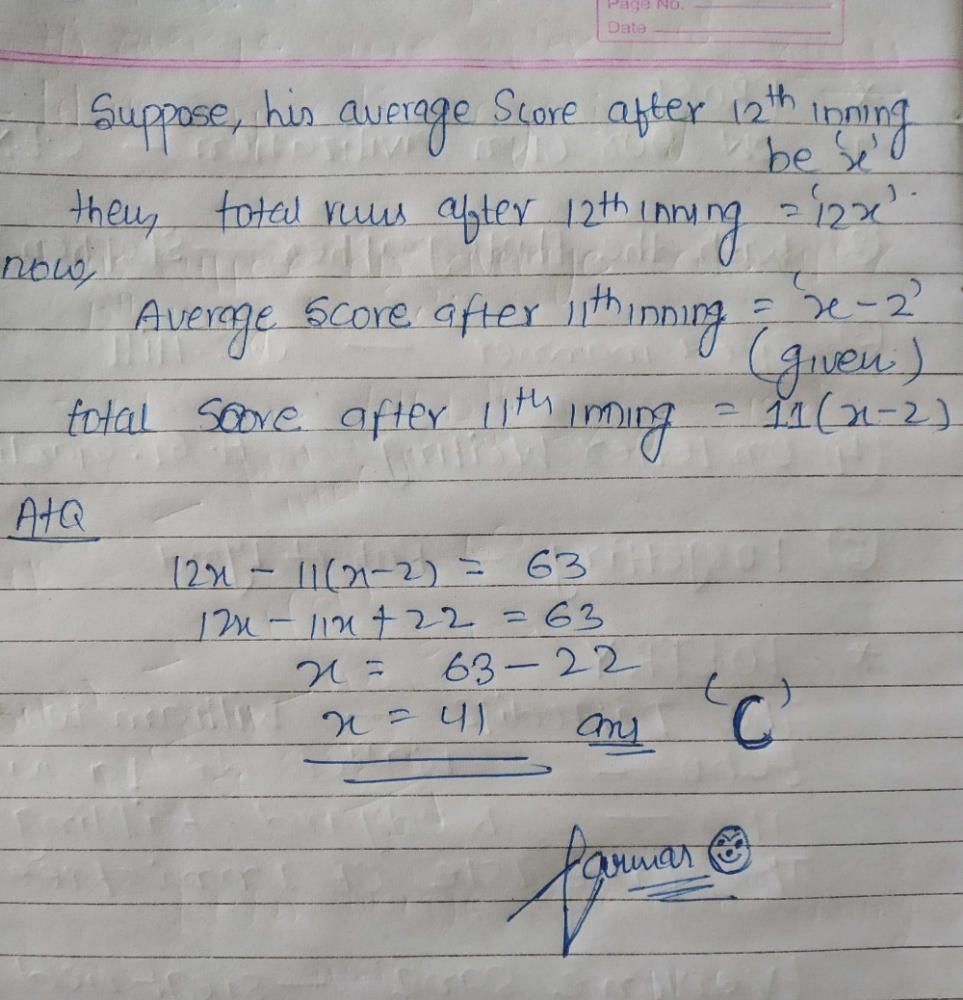 Page No.
Date
Suppose, his average Score after 12th inning
be 'x'
then, total runs after 12th inning = '12x'
now,
Average Score after 11th inning = 'x-2'
(given)
total Score after 11th inning = 11(x-2)
AtQ
12x - 11(x-2) = 63
12x - 11x + 22 = 63
x = 63 - 22
x = 41 ans 'C'